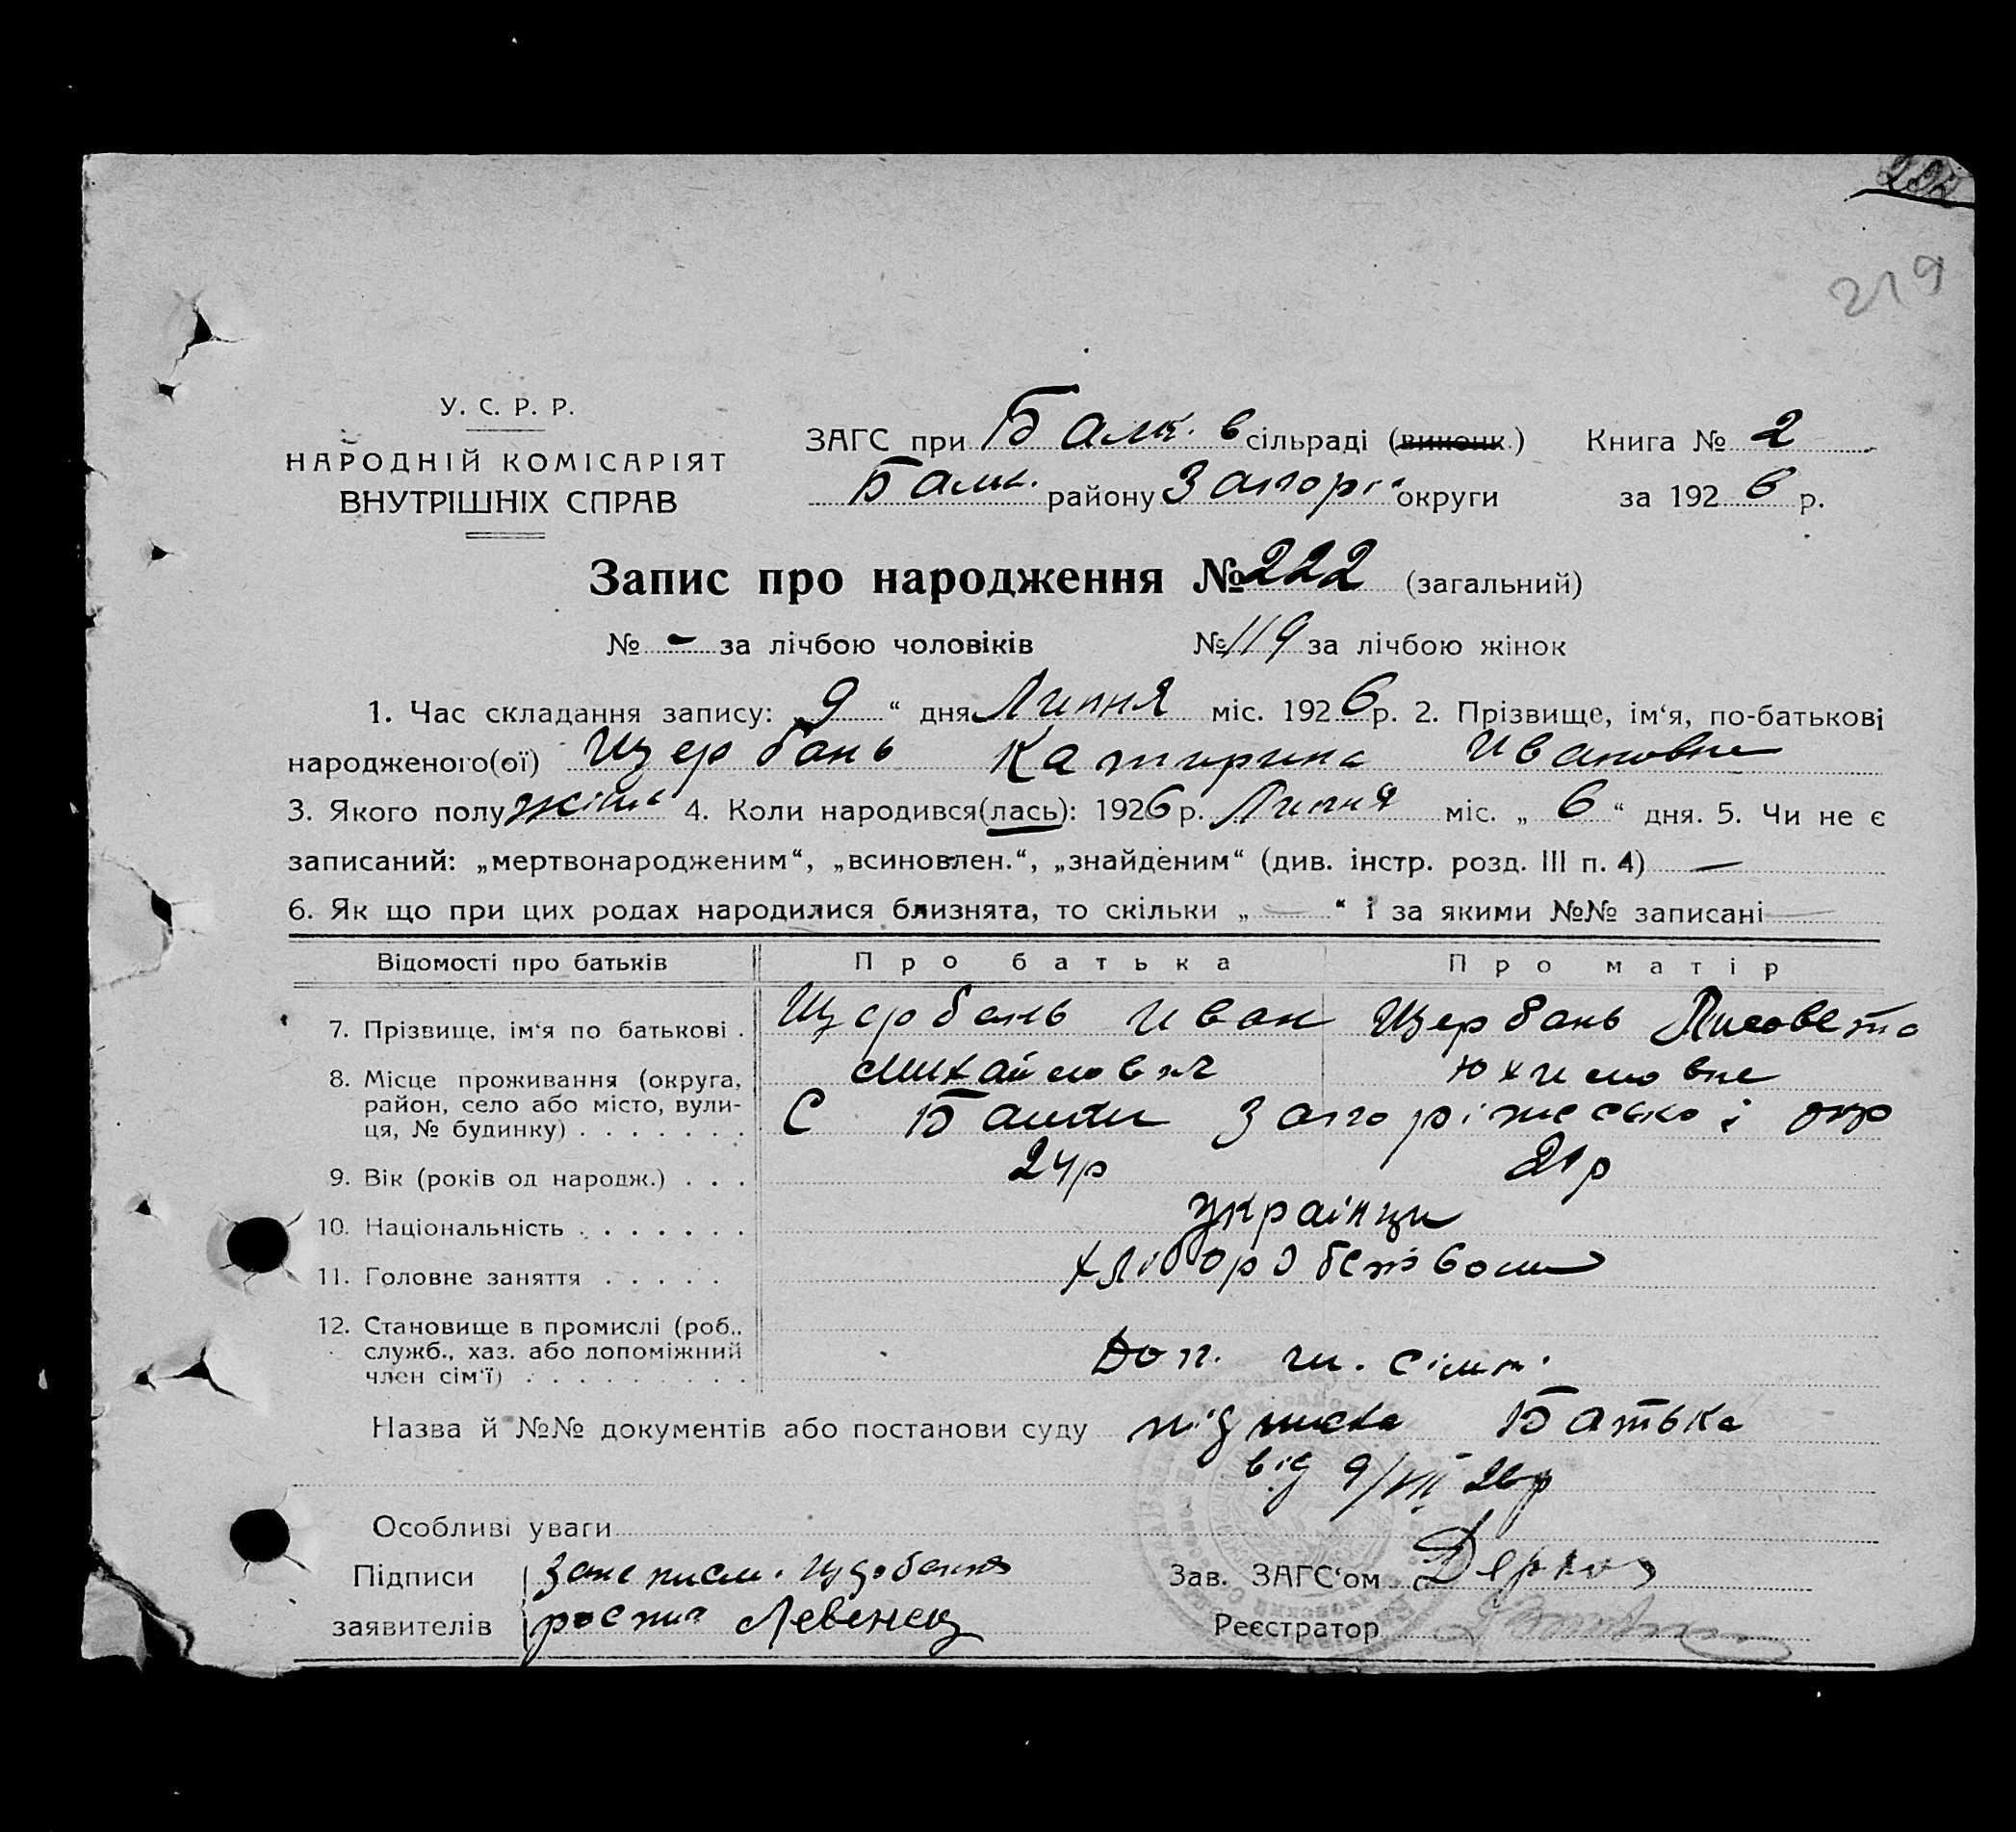 222
219
У. С. Р. Р.
НАРОДНІЙ КОМІСАРІЯТ
ВНУТРІШНІХ СПРАВ
ЗАГС при Балк. в сільраді (виконк.) Книга № 2
Балк. району Запорі округи за 1926 р.
Запис про народження № 222 (загальний)
№ - за лічбою чоловіків № 119 за лічбою жінок
1. Час складання запису: „9“ дня Липня міс. 1926 р. 2. Прізвище, ім‘я, по-батькові
народженого(ої) Щербань Катирина Ивановна
3. Якого полу жіно 4. Коли народився(лась): 1926 р. Липня міс. „6“ дня. 5. Чи не є
записаний: „мертвонародженим“, „всиновлен.“, „знайденим“ (див. інстр. розд. III п. 4) —
6. Як що при цих родах народилися близнята, то скільки „ — “ і за якими №№ записані —
Відомості про батьків Про батька Про матір
7. Прізвище, ім‘я по батькові . Щербань Иван Щербань Лисовета
Михайлович Юхимовна
8. Місце проживання (округа,
район, село або місто, вули-
ця, № будинку) . . . . . . . С Балки Запоріжської окр
9. Вік (років од народж.) . . . 24р 21р
10. Національність . . . . . . . українци
11. Головне заняття . . . . . хліборобством
12. Становище в промислі (роб.,
служб., хаз. або допоміжний
член сім‘ї) . . . . . . . . . Доп. чл. сімі.
Назва й №№ документів або постанови суду підписка Батька
від 9/VII 26р
Особливі уваги
Підписи Зане писм. Щербаня Зав. ЗАГС‘ом
заявителів роспис Левенец Реєстратор